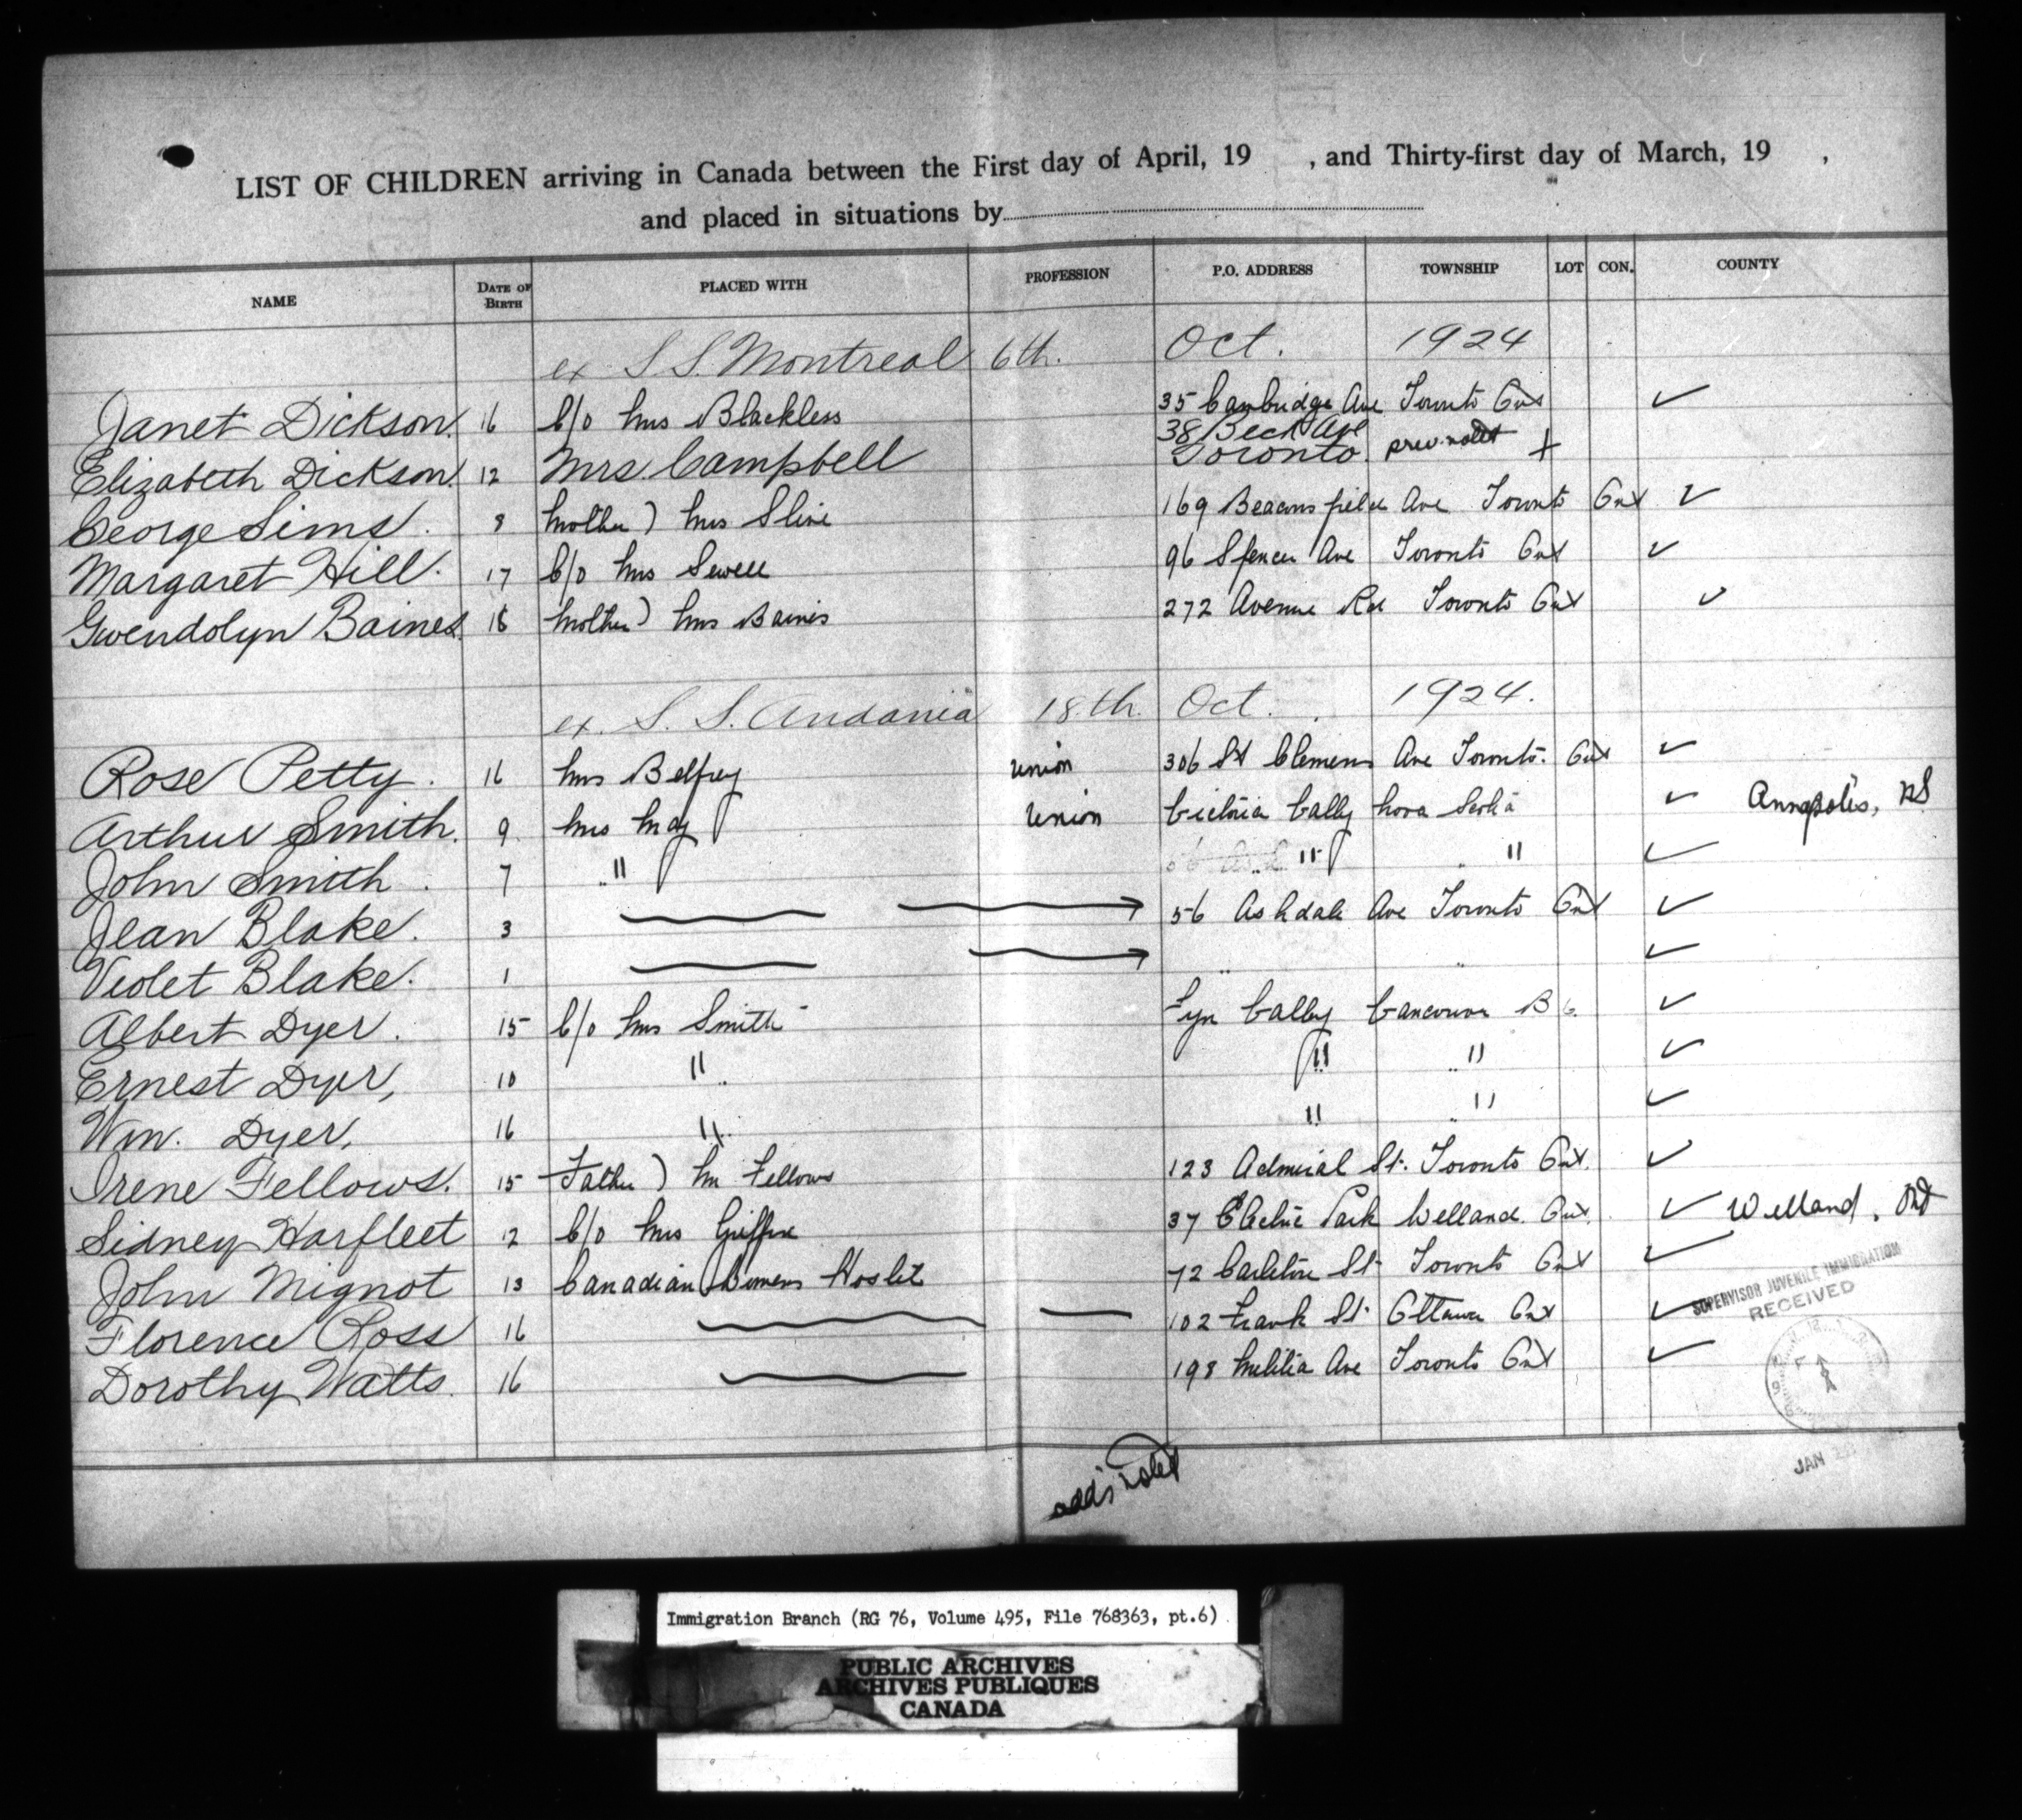 LIST OF CHILDREN arriving in Canada between the First day of April, 19 , and Thirty-first day of March, 19 ,
and placed in situations by
NAME DATE OF BIRTH PLACED WITH PROFESSION P.O. ADDRESS TOWNSHIP LOT CON. COUNTY
ex S.S. Montreal 6th. Oct. 1924
Janet Dickson. 16 C/o Mrs Blackless 35 Cambridge Ave Toronto Ont ✓
Elizabeth Dickson. 12 Mrs Campbell 38 Beck Ave Toronto. prev. noted +
George Sims. 8 Mother) Mrs Sline 169 Beaconsfield Ave Toronto Ont ✓
Margaret Hill. 17 C/o Mrs Sewell 96 Spencer Ave Toronto Ont ✓
Gwendolyn Baines. 18 Mother) Mrs Baines 272 Avenue Rd Toronto Ont ✓
ex. S. S. Andania 18th. Oct. 1924.
Rose Petty. 16 Mrs Belfrey union 306 St Clemens Ave Toronto. Ont ✓
Arthur Smith. 9 Mrs union Victoria Vally Nova Scotia ✓ Annapolis, NS
John Smith. 7 " " " ✓
Jean Blake. 3 56 Ashdale Ave Toronto Ont ✓
Violet Blake. 1 " " ✓
Albert Dyer. 15 C/o Mrs Smith Lyn Vally Vancouver B C. ✓
Ernest Dyer, 10 " " " ✓
Wm. Dyer, 16 " " " ✓
Irene Fellows. 15 Father) Mr Fellows 123 Admiral St. Toronto Ont. ✓
Sidney Harfleet 12 C/o Mrs Griffin 37 Electric Park Welland. Ont. ✓ Welland, Ont
John Mignot 13 Canadian Womens Hostel 72 Carleton St Toronto Ont ✓
Florence Ross 16 102 Frank St Ottawa Ont ✓
Dorothy Watts. 16 198 Milita Ave Toronto Ont ✓
SUPERVISOR JUVENILE IMMIGRATION
RECEIVED
JAN
add's noted
Immigration Branch (RG 76, Volume 495, File 768363, pt.6)
PUBLIC ARCHIVES
ARCHIVES PUBLIQUES
CANADA